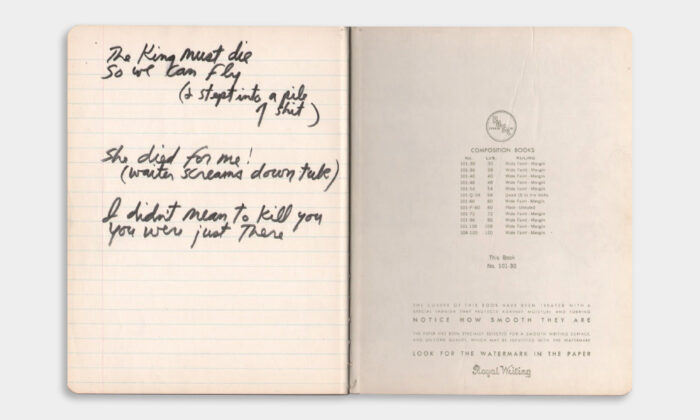 The King must die
So we can fly
(I stept into a pile
of shit)
She died for me!
(waiter screams down tube)
I didn't mean to kill you
you were just There
COMPOSITION BOOKS
NO. LVS. RULING
101-30 30 Wide Faint - Margin
101-36 36 Wide Faint - Margin
101-40 40 Wide Faint - Margin
101-48 48 Wide Faint - Margin
101-54 54 Wide Faint - Margin
101-60 60 Wide Faint - Margin
101-P-60 60 Plain - Unruled
101-72 72 Wide Faint - Margin
101-96 96 Wide Faint - Margin
101-100 100 Wide Faint - Margin
120 Wide Faint - Margin
This Book
No. 101-30
THE COVERS OF THIS BOOK HAVE BEEN TREATED WITH A
SPECIAL VARNISH THAT PROTECTS AGAINST MOISTURE AND RUBBING
NOTICE HOW SMOOTH THEY ARE
THE PAPER HAS BEEN SPECIALLY SELECTED FOR A SMOOTH WRITING SURFACE,
AND UNIFORM QUALITY, WHICH MAY BE IDENTIFIED WITH THE WATERMARK
LOOK FOR THE WATERMARK IN THE PAPER
Royal Writing